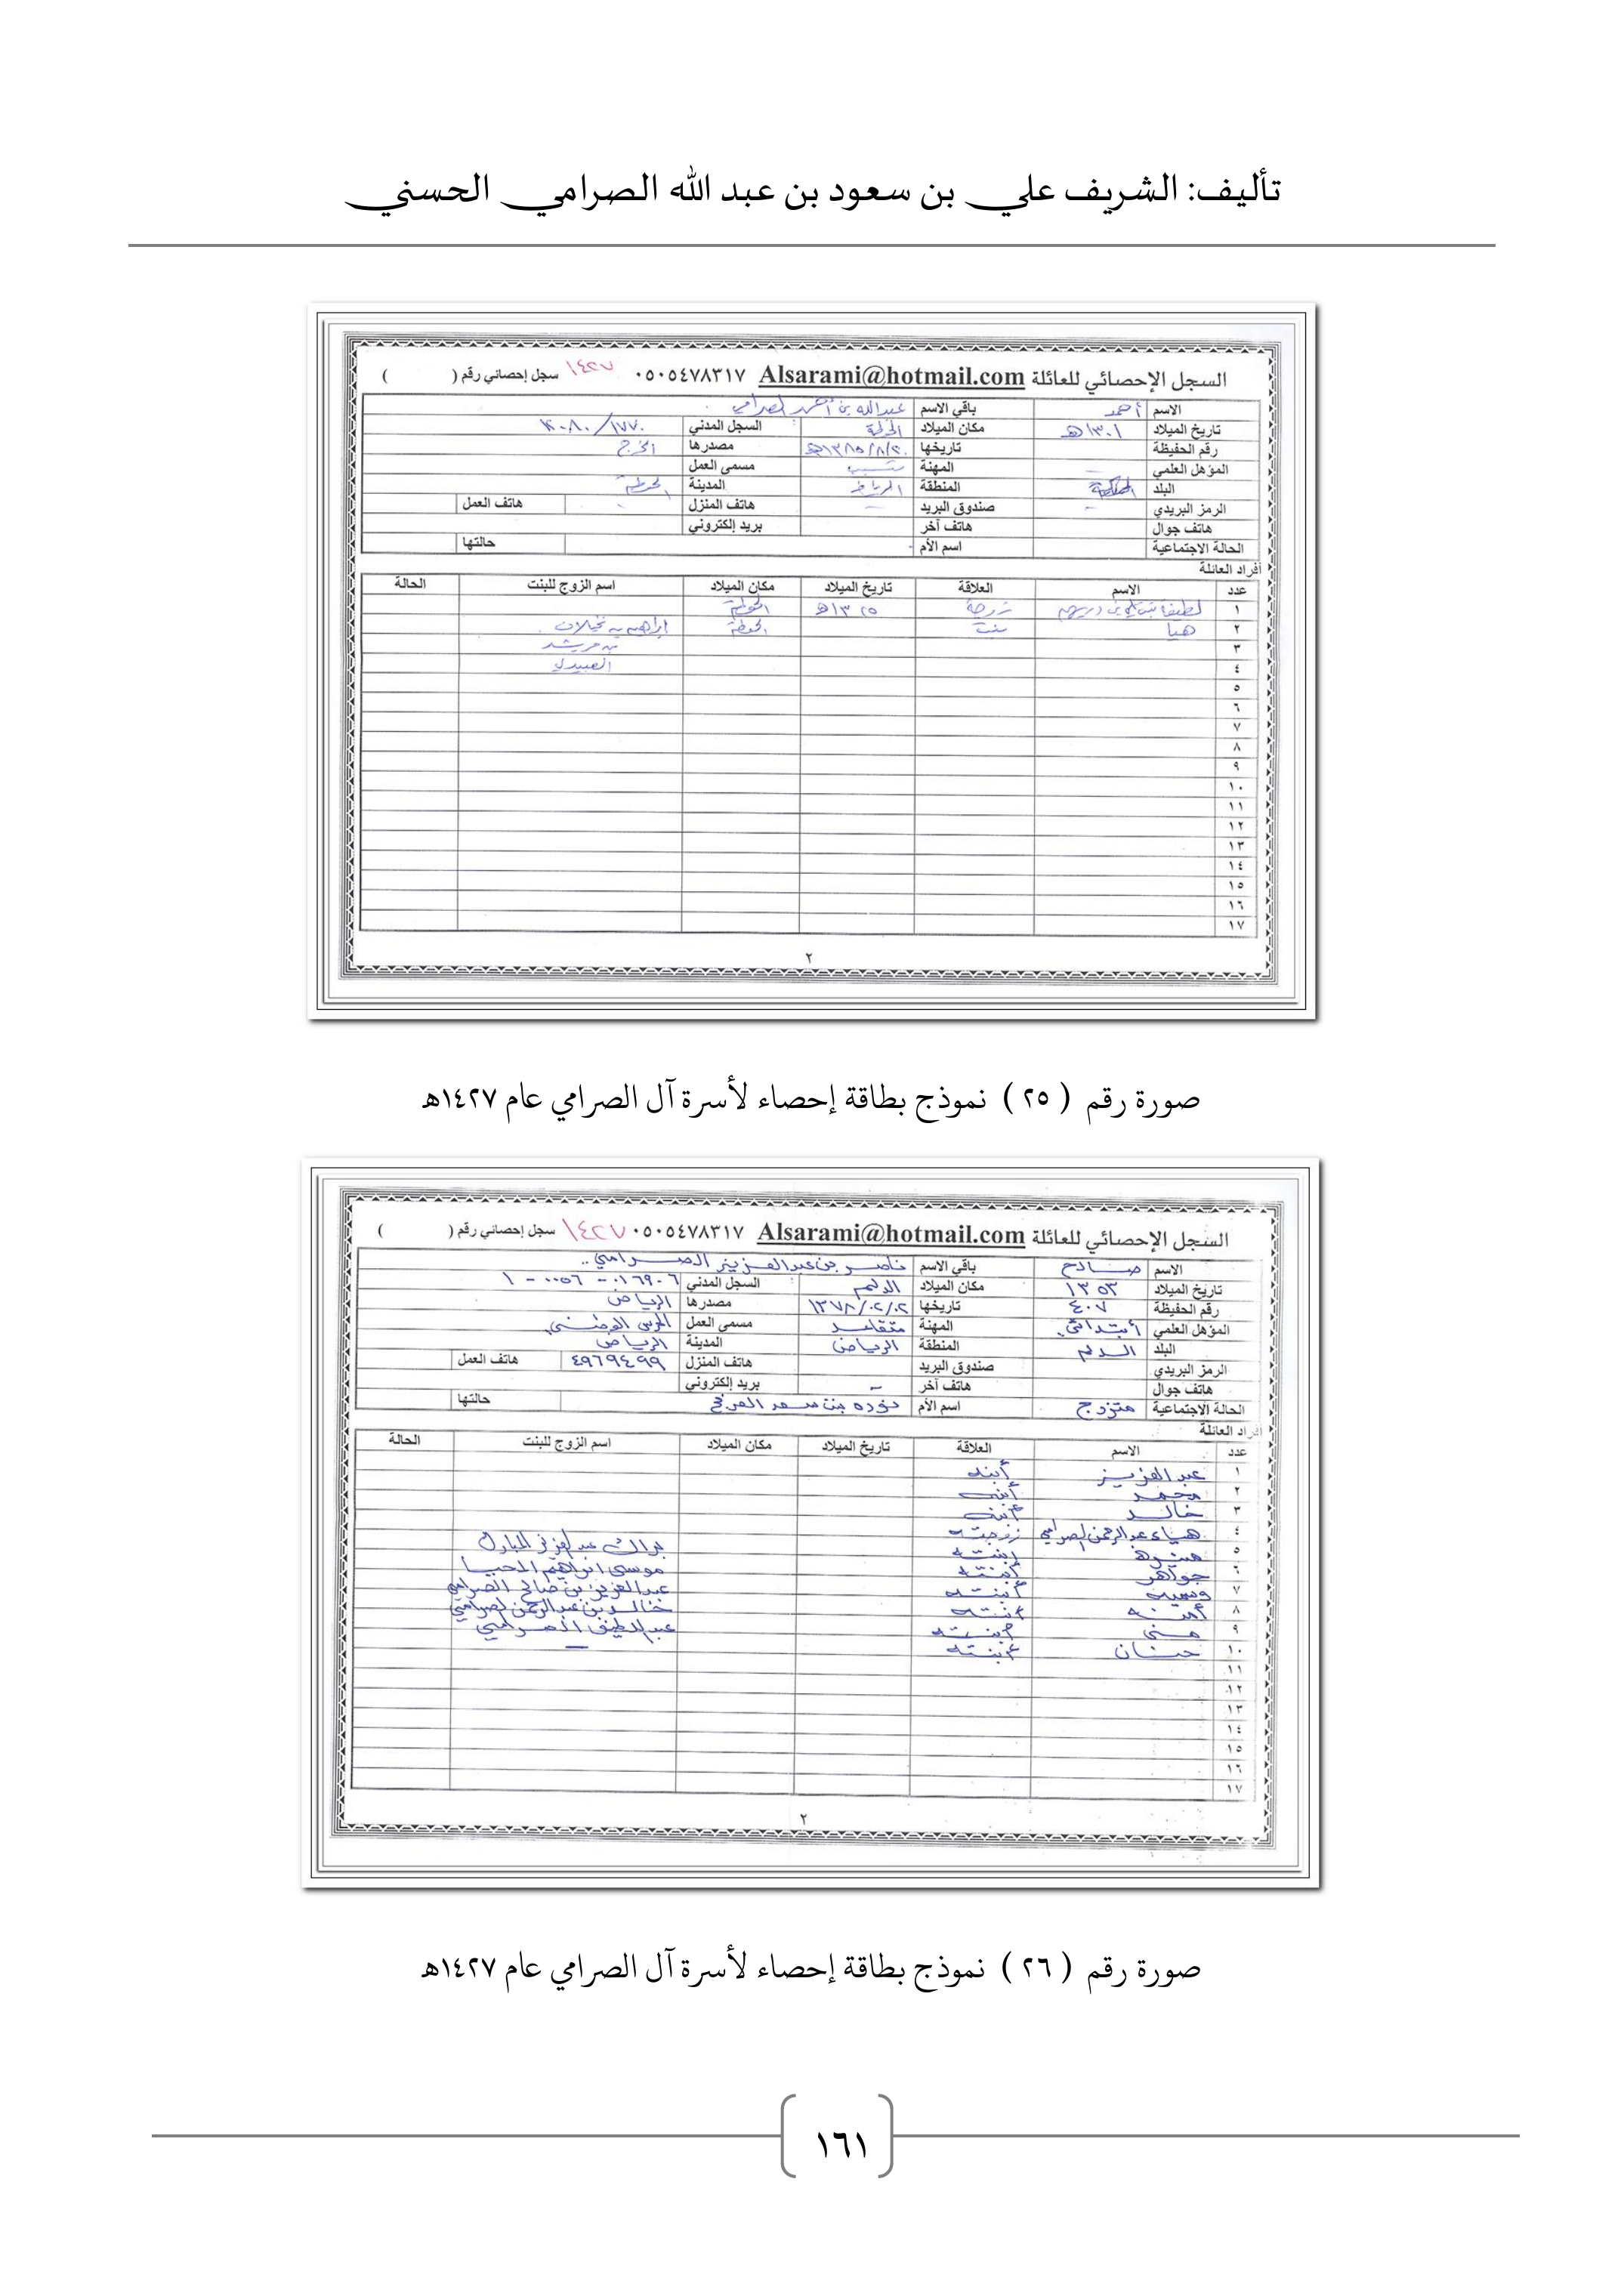 تأليف: الشريف علي بن سعود بن عبد الله الصرامي الحسني
السجل الإحصائي للعائلة Alsarami@hotmail.com ٠٥٠٥٤٧٨٣١٧ ١٤٢٧ سجل إحصائي رقم ( )
الاسم أحمد باقي الاسم عبدالله بن أحمد الصرامي
تاريخ الميلاد ١٣٠١هـ مكان الميلاد السجل المدني
رقم الحفيظة تاريخها مصدرها الخرج
المؤهل العلمي المهنة مسمى العمل
البلد المنطقة الرياض المدينة
الرمز البريدي صندوق البريد هاتف المنزل هاتف العمل
هاتف جوال هاتف آخر بريد إلكتروني
الحالة الاجتماعية اسم الأم حالتها
أفراد العائلة
عدد الاسم العلاقة تاريخ الميلاد مكان الميلاد اسم الزوج للبنت الحالة
١ لطيفة زوجة ١٣٢٥هـ الحوطة
٢ هيا بنت الحوطة ابراهيم
٣
٤
٥
٦
٧
٨
٩
١٠
١١
١٢
١٣
١٤
١٥
١٦
١٧
٢
صورة رقم ( ٢٥ ) نموذج بطاقة إحصاء لأسرة آل الصرامي عام ١٤٢٧هـ
السجل الإحصائي للعائلة Alsarami@hotmail.com ٠٥٠٥٤٧٨٣١٧ ١٤٢٧ سجل إحصائي رقم ( )
الاسم صالح باقي الاسم ناصر بن عبدالعزيز الصرامي
تاريخ الميلاد ١٣٥٣ مكان الميلاد الدلم السجل المدني
رقم الحفيظة ٤٠٧ تاريخها ١٣٧٨/٠٢/٠٢ مصدرها الرياض
المؤهل العلمي أبتدائي المهنة متقاعد مسمى العمل الحرس الوطني
البلد الدلم المنطقة الرياض المدينة الرياض
الرمز البريدي صندوق البريد هاتف المنزل ٤٩٦٩٤٩٩ هاتف العمل
هاتف جوال هاتف آخر بريد إلكتروني
الحالة الاجتماعية متزوج اسم الأم نوره بنت سعد حالتها
أفراد العائلة
عدد الاسم العلاقة تاريخ الميلاد مكان الميلاد اسم الزوج للبنت الحالة
١ عبدالعزيز أبنه
٢ محمد أبنه
٣ خالد أبنه
٤ هياء عبدالرحمن الصرامي زوجته
٥ منيرة إبنته براك عبدالعزيز المبارك
٦ جواهر أبنته موسى ابراهيم المحيا
٧ وسميه أبنته عبدالعزيز بن صالح الصرامي
٨ أمنه أبنته خالد بن عبدالرحمن الصرامي
٩ منى أبنته عبداللطيف الصرامي
١٠ حنان أبنته
١١
١٢
١٣
١٤
١٥
١٦
١٧
٢
صورة رقم ( ٢٦ ) نموذج بطاقة إحصاء لأسرة آل الصرامي عام ١٤٢٧هـ
١٦١